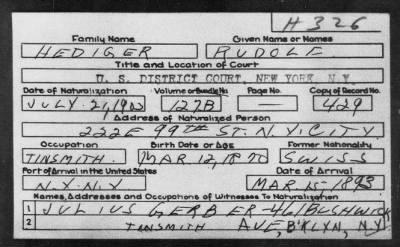 H 326
Family Name Given Name or Names
HEDIGER RUDOLF
Title and Location of Court
U. S. DISTRICT COURT, NEW YORK, N.Y.
Date of Naturalization Volume or Bundle No. Page No. Copy of Record No.
JULY. 21, 1902 127B — 429
Address of Naturalized Person
222 E 99TH ST. N.Y. CITY.
Occupation Birth Date or Age Former Nationality
TINSMITH. MAR 12, 1870 SWISS
Port of Arrival in the United States Date of Arrival
N.Y. N.Y. MAR. 15, 1893
Names, Addresses and Occupations of Witnesses To Naturalization
1 JULIUS GERBER - 461 BUSHWICK
2 TINSMITH AVE, B'KLYN, N.Y.